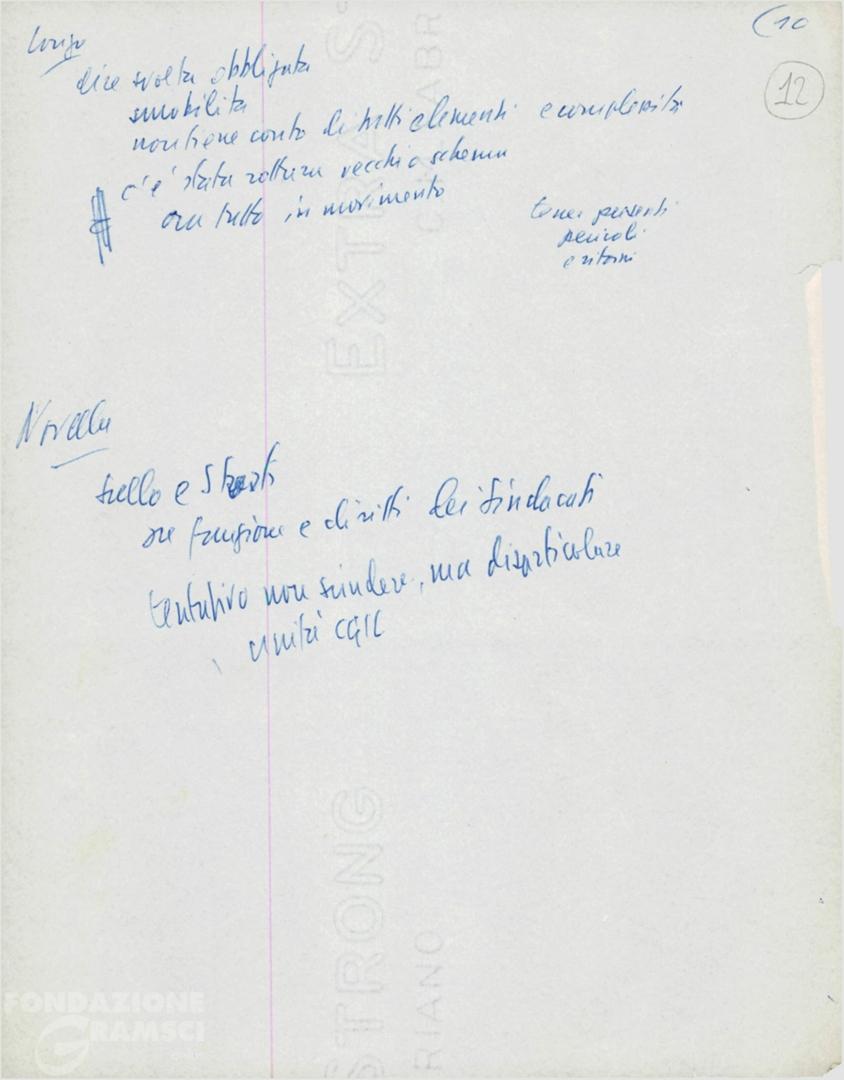 (10
12
Longo
dice svolta obbligata
smobilita
non tiene conto di tutti elementi e complessità
c'è stata rottura vecchio schema
ora tutto in movimento
tener presenti
pericoli
e ritorni
Novella
su funzione e diritti dei sindacati
tentativo non scindere, ma disarticolare
unità CGIL
EXTRA S
CA ABR
STRONG
RIANO
FONDAZIONE
GRAMSCI